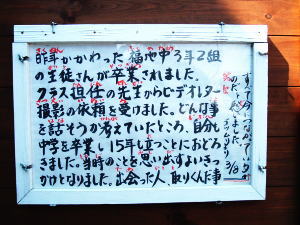 昨年かかわった福地中3年2組
の生徒さんが卒業されました。
クラス担任の先生からビデオレター
撮影の依頼を受けました。どんな事
を話そうか考えていたところ、自分も
中学を卒業し15年も立つことにおどろ
きました。当時のことを思い出すよいきっ
かけとなりました。出会った人、取りくんだ事
すべて今につながっている
のだと感じました。
3/8